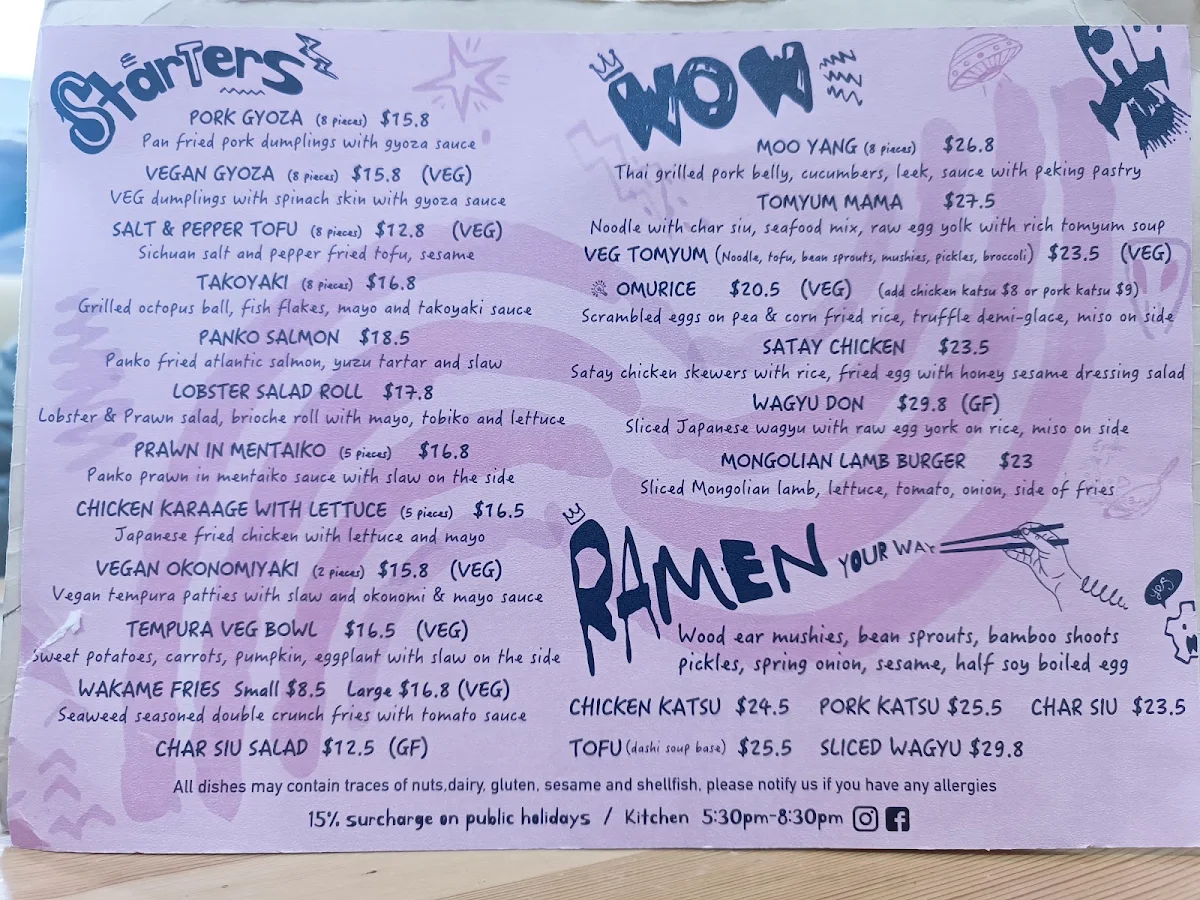 Starters
PORK GYOZA (8 pieces) $15.8
Pan fried pork dumplings with gyoza sauce
VEGAN GYOZA (8 pieces) $15.8 (VEG)
VEG dumplings with spinach skin with gyoza sauce
SALT & PEPPER TOFU (8 pieces) $12.8 (VEG)
Sichuan salt and pepper fried tofu, sesame
TAKOYAKI (8 pieces) $16.8
Grilled octopus ball, fish flakes, mayo and takoyaki sauce
PANKO SALMON $18.5
Panko fried atlantic salmon, yuzu tartar and slaw
LOBSTER SALAD ROLL $17.8
Lobster & Prawn salad, brioche roll with mayo, tobiko and lettuce
PRAWN IN MENTAIKO (5 pieces) $16.8
Panko prawn in mentaiko sauce with slaw on the side
CHICKEN KARAAGE WITH LETTUCE (5 pieces) $16.5
Japanese fried chicken with lettuce and mayo
VEGAN OKONOMIYAKI (2 pieces) $15.8 (VEG)
Vegan tempura patties with slaw and okonomi & mayo sauce
TEMPURA VEG BOWL $16.5 (VEG)
Sweet potatoes, carrots, pumpkin, eggplant with slaw on the side
WAKAME FRIES Small $8.5 Large $16.8 (VEG)
Seaweed seasoned double crunch fries with tomato sauce
CHAR SIU SALAD $12.5 (GF)
WOW
MOO YANG (8 pieces) $26.8
Thai grilled pork belly, cucumbers, leek, sauce with peking pastry
TOMYUM MAMA $27.5
Noodle with char siu, seafood mix, raw egg yolk with rich tomyum soup
VEG TOMYUM (Noodle, tofu, bean sprouts, mushies, pickles, broccoli) $23.5 (VEG)
OMURICE $20.5 (VEG) (add chicken katsu $8 or pork katsu $9)
Scrambled eggs on pea & corn fried rice, truffle demi-glace, miso on side
SATAY CHICKEN $23.5
Satay chicken skewers with rice, fried egg with honey sesame dressing salad
WAGYU DON $29.8 (GF)
Sliced Japanese wagyu with raw egg york on rice, miso on side
MONGOLIAN LAMB BURGER $23
Sliced Mongolian lamb, lettuce, tomato, onion, side of fries
RAMEN YOUR WAY
yes
Wood ear mushies, bean sprouts, bamboo shoots
pickles, spring onion, sesame, half soy boiled egg
CHICKEN KATSU $24.5 PORK KATSU $25.5 CHAR SIU $23.5
TOFU (dashi soup base) $25.5 SLICED WAGYU $29.8
All dishes may contain traces of nuts,dairy, gluten, sesame and shellfish, please notify us if you have any allergies
15% surcharge on public holidays / Kitchen 5:30pm-8:30pm